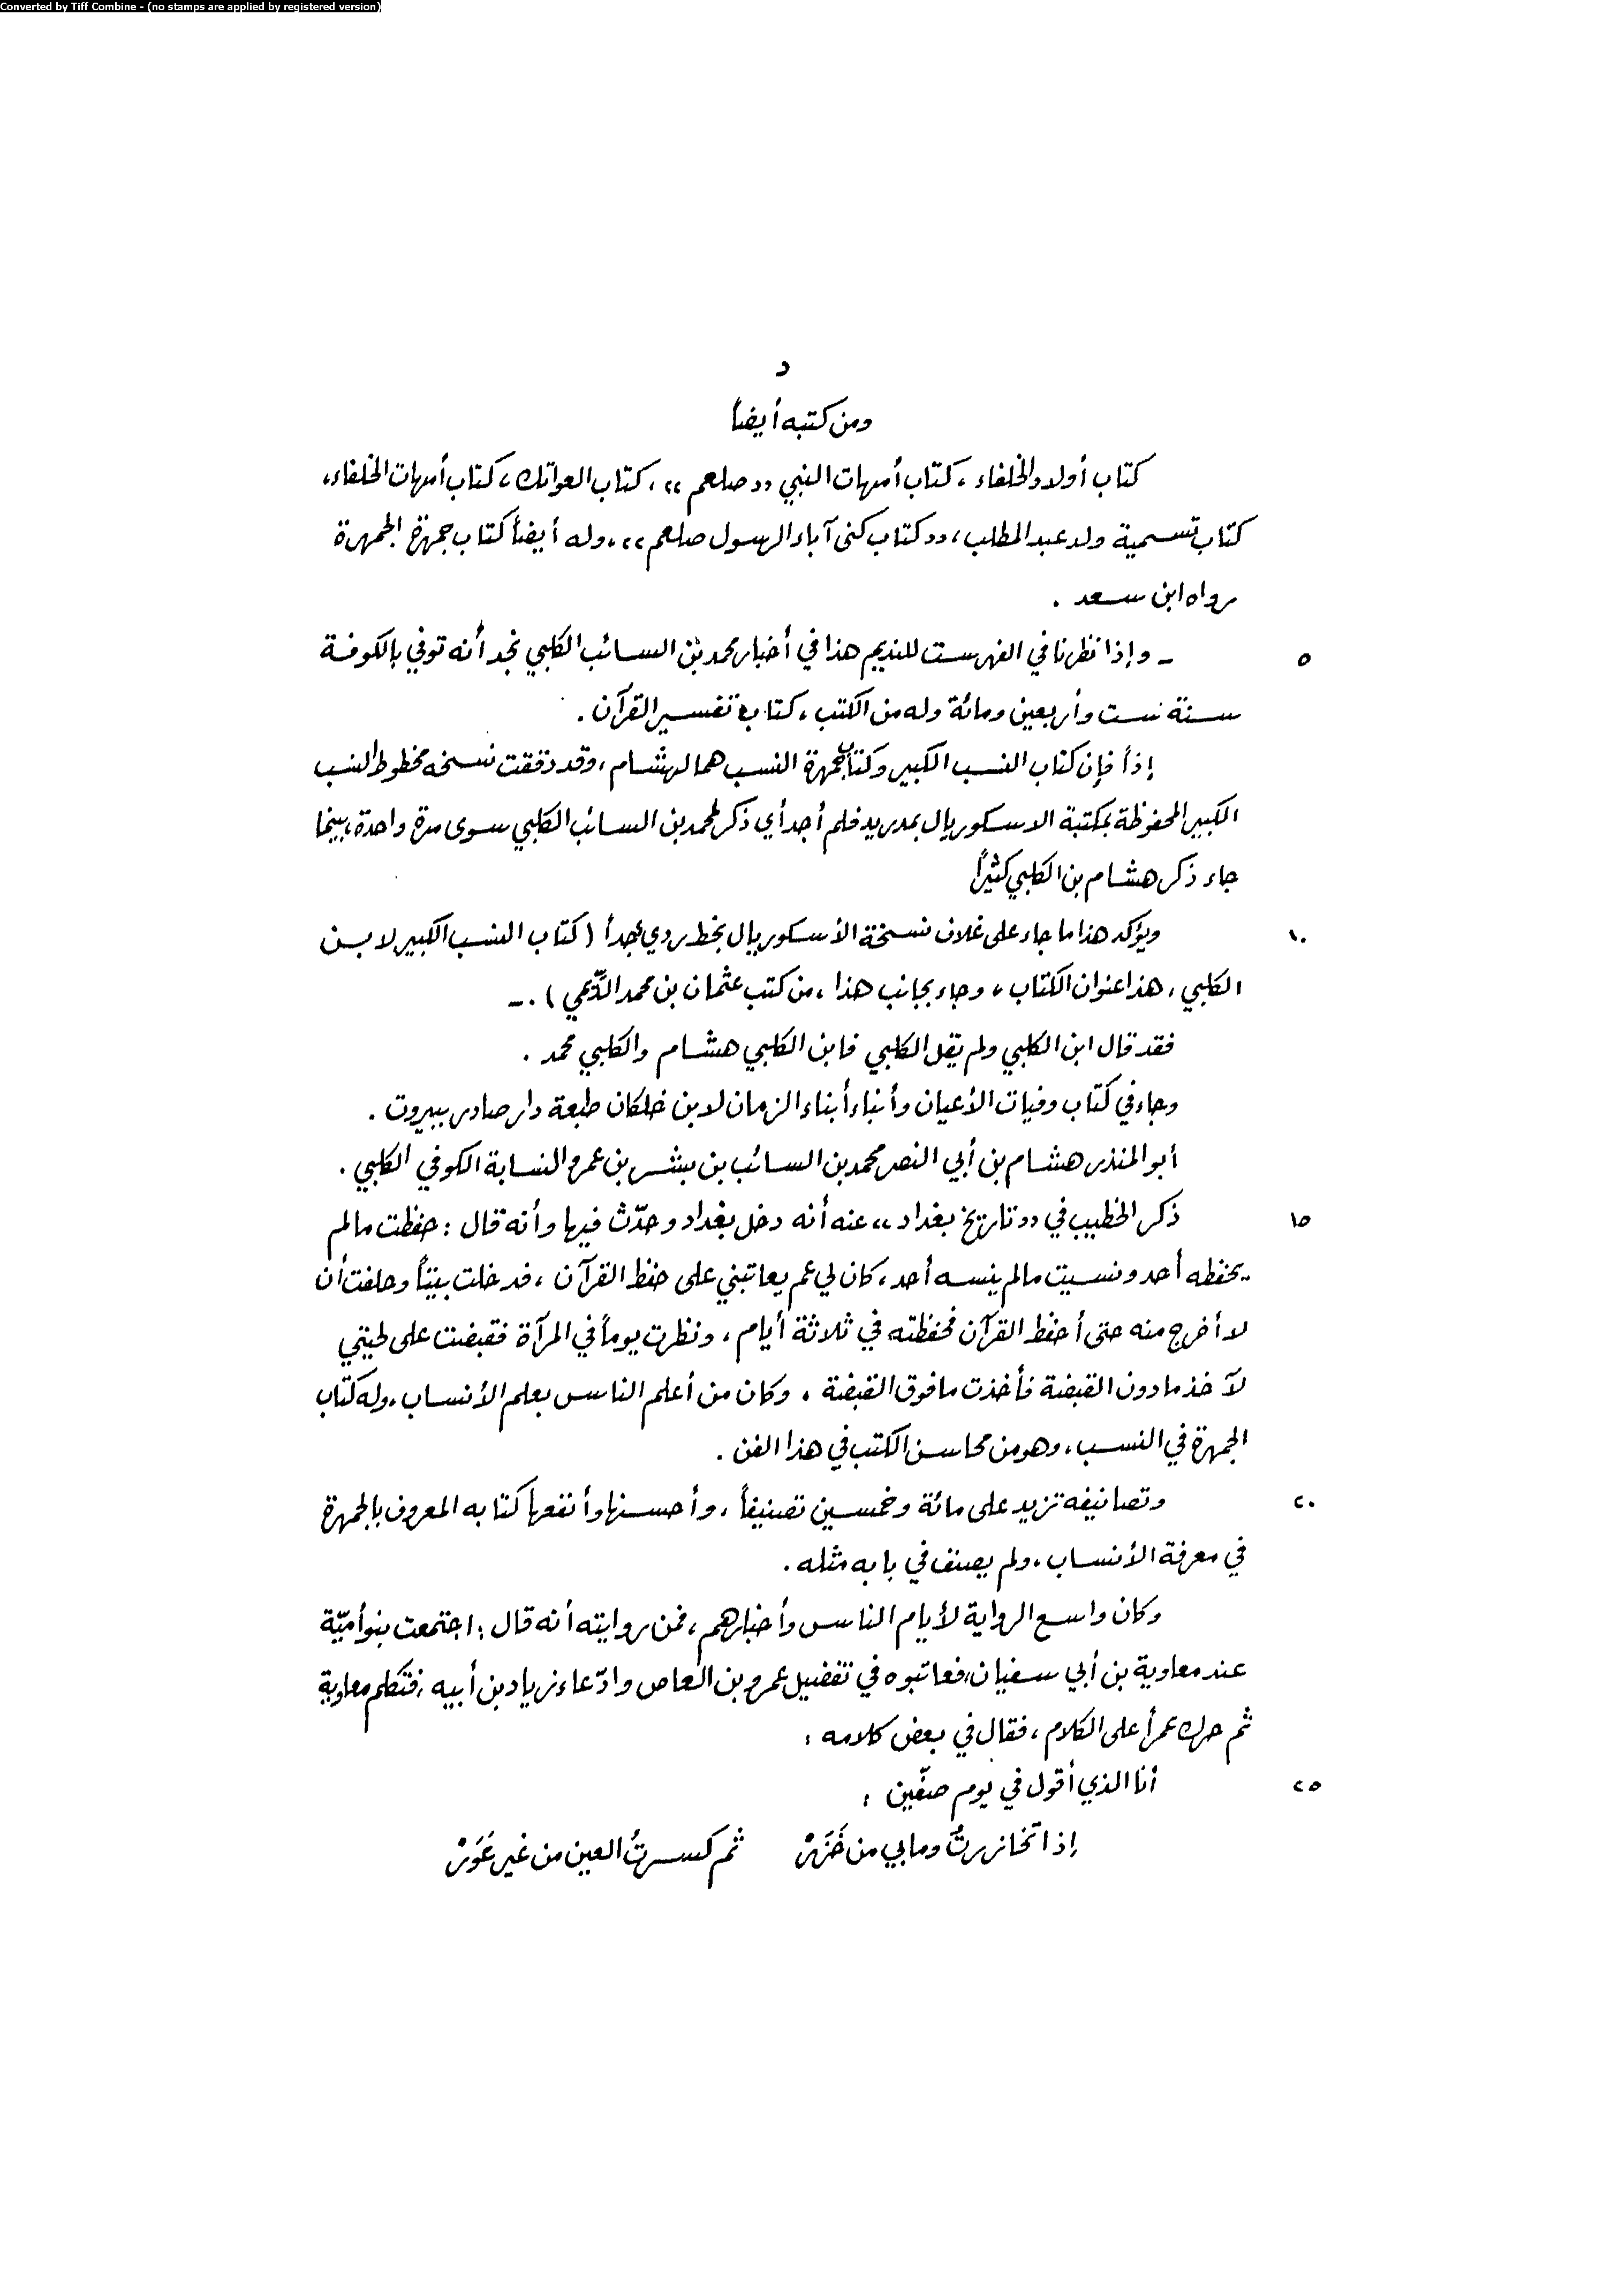 Converted by Tiff Combine - (no stamps are applied by registered version)
د
ومن كتبه أيضاً
كتاب أولاد الخلفاء ، كتاب أمهات النبي «صلعم» ، كتاب العواتك ، كتاب أمهات الخلفاء ،
كتاب تسمية ولد عبد المطلب ، «كتاب كنى آباء الرسول صلعم» ، وله أيضاً كتاب جمهرة الجمهرة
رواه ابن سعد .
٥ - وإذا نظرنا في الفهرست للنديم هذا في أخبار محمد بن السائب الكلبي نجد أنه توفي بالكوفة
سنة ست وأربعين ومائة وله من الكتب ، كتاب تفسير القرآن .
إذاً فإن كتاب النسب الكبير وكتاب جمهرة النسب هما لهشام ، وقد دققت نسخه مخطوط النسب
الكبير المحفوظة بمكتبة الاسكوريال بمدريد فلم أجد أي ذكر لمحمد بن السائب الكلبي سوى مرة واحدة ، بينما
جاء ذكر هشام بن الكلبي كثيراً
١٠ ويؤكد هذا ما جاء على غلاف نسخة الأسكوريال بخط رديء جداً ( كتاب النسب الكبير لابن
الكلبي ، هذا عنوان الكتاب ، وجاء بجانب هذا ، من كتب عثمان بن محمد الدّيمي ) . -
فقد قال ابن الكلبي ولم يقل الكلبي فابن الكلبي هشام والكلبي محمد .
وجاء في كتاب وفيات الأعيان وأنباء أبناء الزمان لابن خلكان طبعة دار صادر ببيروت .
أبو المنذر هشام بن أبي النصر محمد بن السائب بن بشر بن عمرو النسابة الكوفي الكلبي .
١٥ ذكر الخطيب في «تاريخ بغداد» عنه أنه دخل بغداد وحدّث فيها وأنه قال : حفظت مالم
يحفظه أحد ونسيت مالم ينسه أحد ، كان لي عم يعاتبني على حفظ القرآن ، فدخلت بيتاً وحلفت أن
لا أخرج منه حتى أحفظ القرآن فحفظته في ثلاثة أيام ، ونظرت يوماً في المرآة فقبضت على لحيتي
لآخذ مادون القبضة فأخذت مافوق القبضة . وكان من أعلم الناس بعلم الأنساب ، وله كتاب
الجمهرة في النسب ، وهو من محاسن الكتب في هذا الفن .
٢٠ وتصانيفه تزيد على مائة وخمسين تصنيفاً ، وأحسنها وأنفعها كتابه المعروف بالجمهرة
في معرفة الأنساب ، ولم يصنف في بابه مثله .
وكان واسع الرواية لأيام الناس وأخبارهم ، فمن روايته أنه قال : اجتمعت بنو أميّة
عند معاوية بن أبي سفيان ، فعاتبوه في تفضيل عمرو بن العاص وادّعاء زياد بن أبيه ، فتكلم معاوية
ثم حرك عمراً على الكلام ، فقال في بعض كلامه :
٢٥ أنا الذي أقول في يوم صفّين :
إذا تخازرتُ ومابي من خَزَرْ ثم كسرتُ العين من غير عَوَرْ